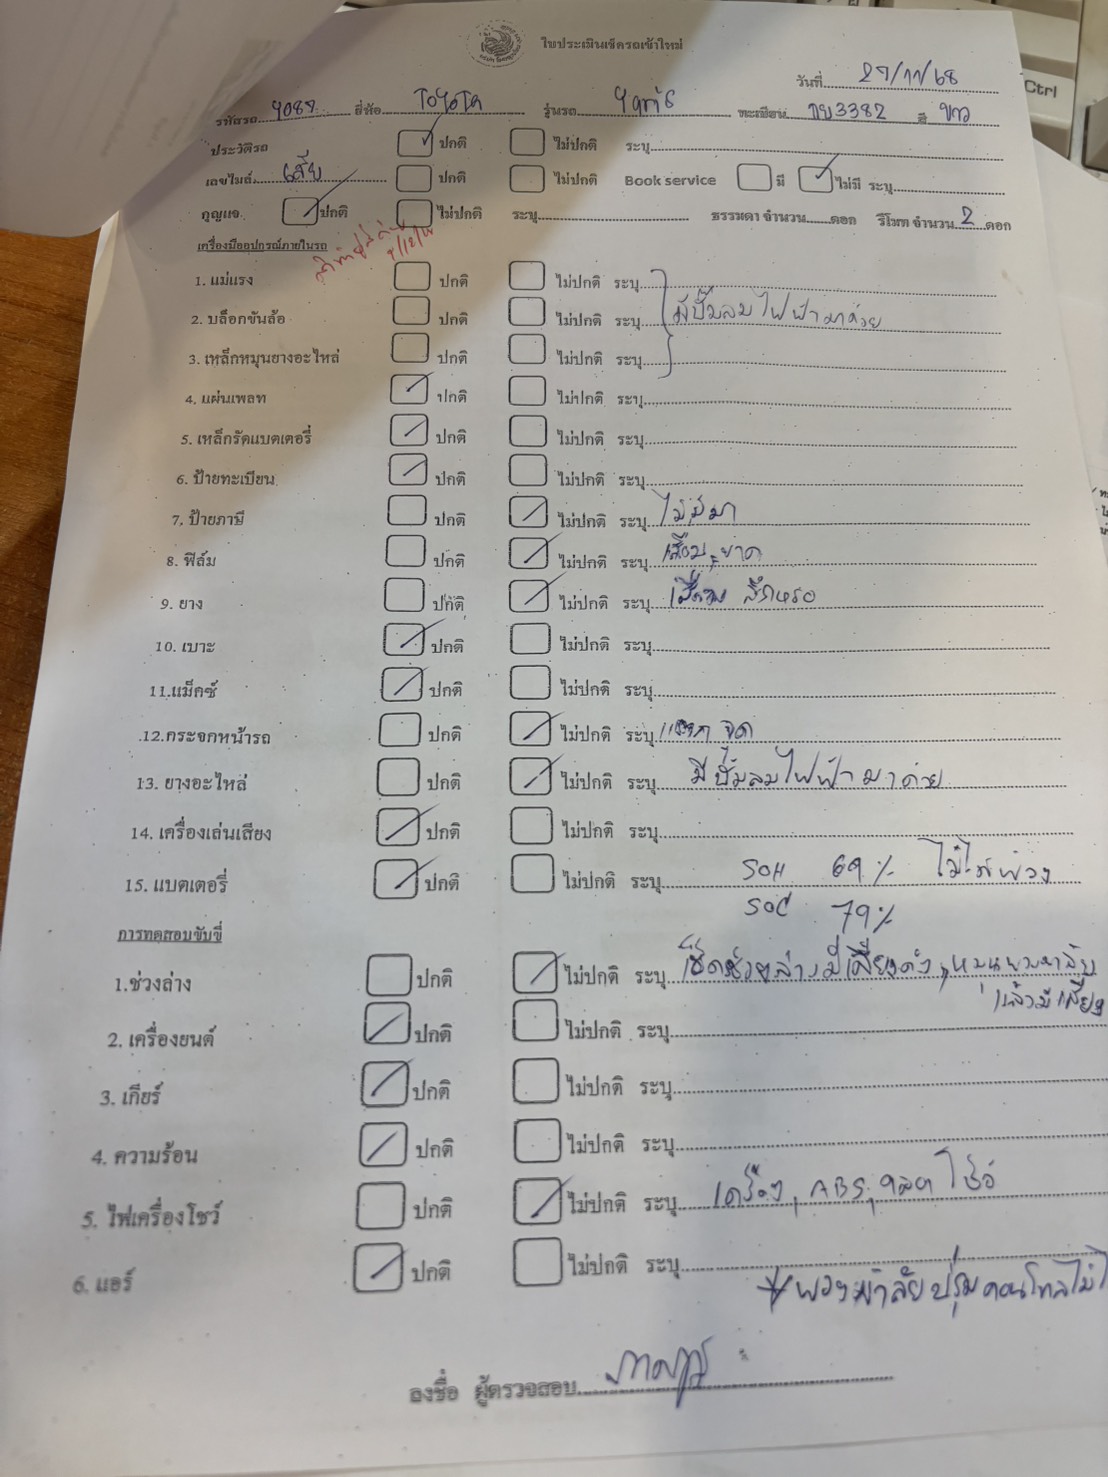 ใบประเมินเช็ครถเข้าใหม่
วันที่ 27/11/68
รหัสรถ 4088 ยี่ห้อ TOYOTA รุ่นรถ Yaris ทะเบียน 3382 สี ขาว
ประวัติรถ ปกติ ไม่ปกติ ระบุ
เลขไมล์ เสีย ปกติ ไม่ปกติ Book service มี ไม่มี ระบุ
กุญแจ ปกติ ไม่ปกติ ระบุ ธรรมดา จำนวน ดอก รีโมท จำนวน 2 ดอก
เครื่องมืออุปกรณ์ภายในรถ
1. แม่แรง ปกติ ไม่ปกติ ระบุ
2. บล็อกขันล้อ ปกติ ไม่ปกติ ระบุ มีปั๊มลมไฟฟ้ามาด้วย
3. เหล็กหมุนยางอะไหล่ ปกติ ไม่ปกติ ระบุ
4. แผ่นเพลท ปกติ ไม่ปกติ ระบุ
5. เหล็กรัดแบตเตอรี่ ปกติ ไม่ปกติ ระบุ
6. ป้ายทะเบียน ปกติ ไม่ปกติ ระบุ
7. ป้ายภาษี ปกติ ไม่ปกติ ระบุ ไม่มีมา
8. ฟิล์ม ปกติ ไม่ปกติ ระบุ เสื่อม, ขาด
9. ยาง ปกติ ไม่ปกติ ระบุ เสื่อม สึกหรอ
10. เบาะ ปกติ ไม่ปกติ ระบุ
11.แม็คซ์ ปกติ ไม่ปกติ ระบุ
12.กระจกหน้ารถ ปกติ ไม่ปกติ ระบุ
13. ยางอะไหล่ ปกติ ไม่ปกติ ระบุ มีปั๊มลมไฟฟ้ามาด้วย
14. เครื่องเล่นเสียง ปกติ ไม่ปกติ ระบุ
15. แบตเตอรี่ ปกติ ไม่ปกติ ระบุ SOH 69% ไม่ได้พ่วง
SOC 79%
การทดสอบขับขี่
1.ช่วงล่าง ปกติ ไม่ปกติ ระบุ เช็คช่วงล่างมีเสียงดัง, หมุนพวงมาลัย
แล้วมีเสียง
2. เครื่องยนต์ ปกติ ไม่ปกติ ระบุ
3. เกียร์ ปกติ ไม่ปกติ ระบุ
4. ความร้อน ปกติ ไม่ปกติ ระบุ
5. ไฟเครื่องโชว์ ปกติ ไม่ปกติ ระบุ เครื่อง, ABS, โชว์
6. แอร์ ปกติ ไม่ปกติ ระบุ
* พวงมาลัยปรุ่มคอนโทลไม่
ลงชื่อ ผู้ตรวจสอบ
Ctrl